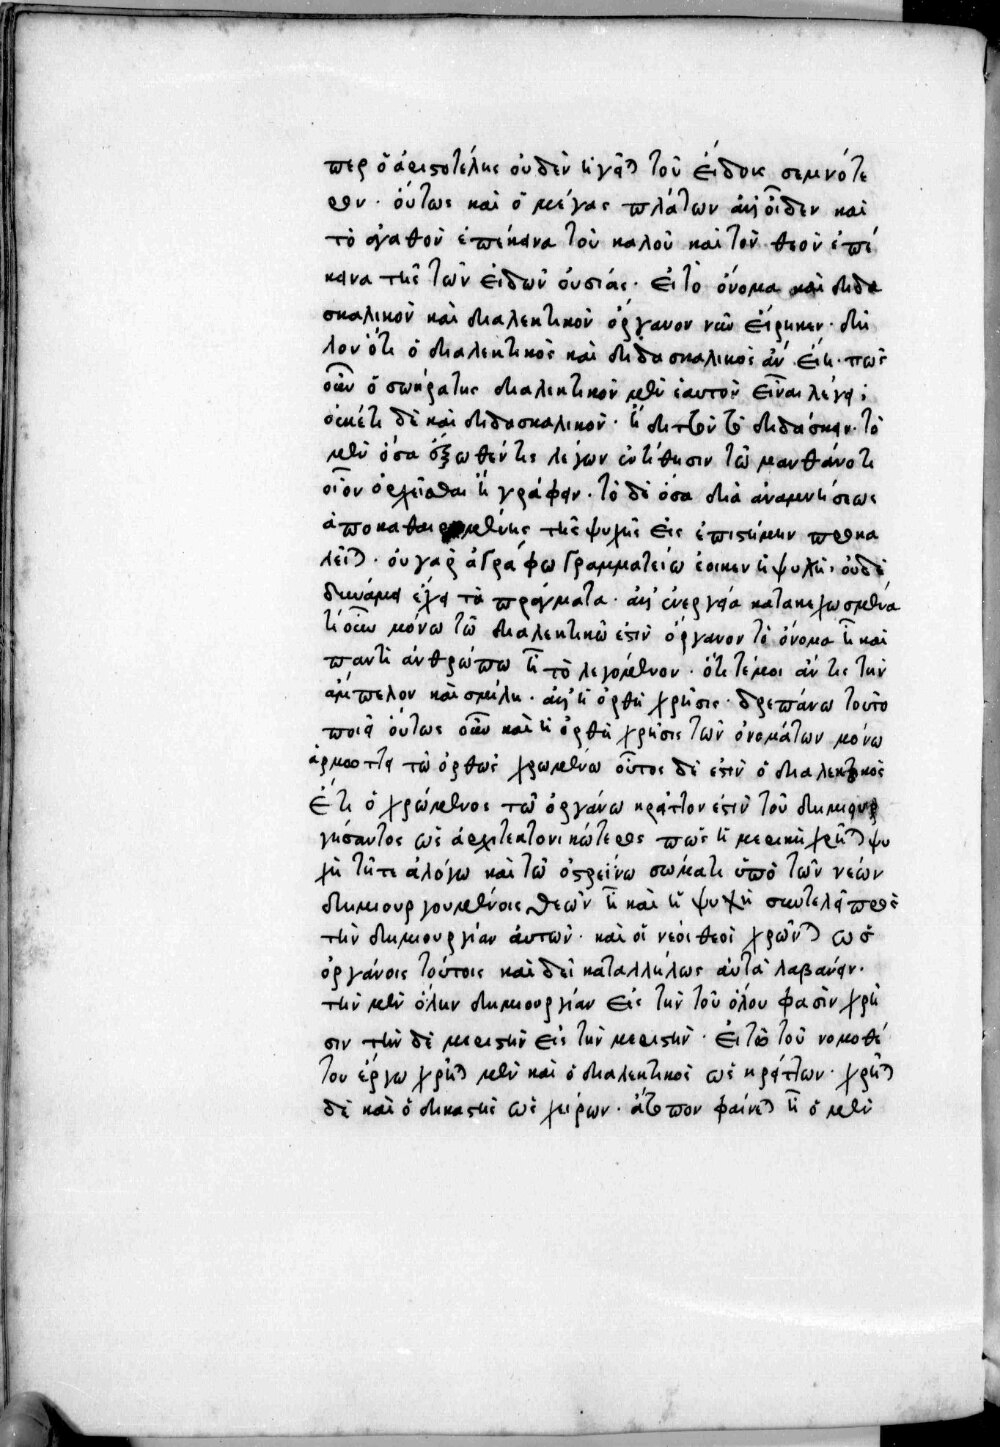 περ ὁ ἀριστοτέλης οὐδὲν ἡγεῖται τοῦ εἴδους σεμνότε
ρον· οὕτως καὶ ὁ μέγας πλάτων ἀλλ' οἶδεν καὶ
τὸ ἀγαθὸν ἐπέκεινα τοῦ καλοῦ καὶ τὸν θεὸν ἐπέ
κεινα τῆς τῶν εἰδῶν οὐσίας· εἰ τὸ ὄνομα καὶ διδα
σκαλικὸν καὶ διαλεκτικὸν ὄργανον νῦν εἴρηκεν· δῆ
λον ὅτι ὁ διαλεκτικὸς καὶ διδασκαλικὸς ἂν εἴη· πῶς
οὖν ὁ σωκράτης διαλεκτικὸν μὲν ἑαυτὸν εἶναι λέγει;
οὐκέτι δὲ καὶ διδασκαλικὸν· ἢ διττὸν τὸ διδάσκειν· τὸ
μὲν ὅσα ἔξωθέν τις λέγων ἐντίθησιν τῷ μανθάνοντι
οἷον ὀρχεῖσθαι ἢ γράφειν· τὸ δὲ ὅσα διὰ ἀναμνήσεως
ἀποκαθαιρομένης τῆς ψυχῆς εἰς ἐπιστήμην προκα
λεῖται· οὐ γὰρ ἀγράφω γραμματείω ἔοικεν ἡ ψυχή· οὐδὲ
δυνάμει ἔχει τὰ πράγματα· ἀλλ' ἐνεργεία κατακεχωσμένα
τί οὖν μόνω τῶ διαλεκτικῶ ἐστὶν ὄργανον τὸ ὄνομα ἢ καὶ
παντὶ ἀνθρώπω ἢ τὸ λεγόμενον· ὅτι τέμοι ἄν τις τὴν
ἄμπελον καὶ σμίλη· ἀλλ' ἡ ὀρθὴ χρῆσις· δρεπάνω τοῦτο
ποιεῖ οὕτως οὖν καὶ ἡ ὀρθὴ χρῆσις τῶν ὀνομάτων μόνω
ἁρμόττει τῶ ὀρθῶς χρωμένω οὗτος δὲ ἐστὶν ὁ διαλεκτικὸς
ἔτι ὁ χρώμενος τῶ ὀργάνω κρεῖττον ἐστὶν τοῦ δημιουρ
γήσαντος ὡς ἀρχιτεκτονικώτερος πῶς ἡ μερικὴ χρῆται ψυ
χὴ τῆ τε ἀλόγω καὶ τῶ ὀστρείνω σώματι ὑπὸ τῶν νέων
δημιουργουμένοις θεῶν ἢ καὶ ἡ ψυχὴ συντελεῖ πρὸς
τὴν δημιουργίαν αὐτῶν· καὶ οἱ νέοι θεοὶ χρῶνται ὡς
ὀργάνοις τούτοις καὶ δεῖ καταλλήλως αὐτὰ λαβάνειν·
τὴν μὲν ὅλην δημιουργίαν εἰς τὴν τοῦ ὅλου φασὶν χρῆ
σιν τὴν δὲ μεριστὴν εἰς τὴν μεριστὴν· εἰ τῶ τοῦ νομοθέ
του ἔργω χρῆται μὲν καὶ ὁ διαλεκτικὸς ὡς κρείττων· χρῆται
δὲ καὶ ὁ δικαστὴς ὡς χείρων· ἄτοπον φαίνεται ἢ ὁ μὲν